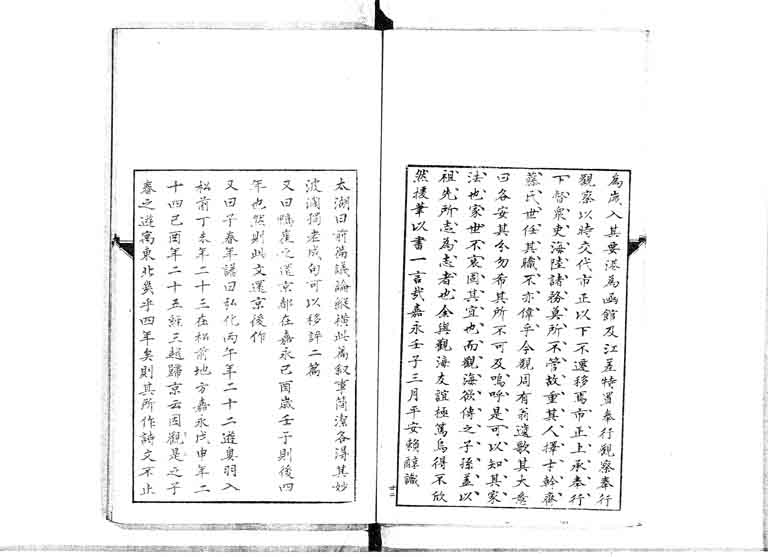 為歲入其要港為凾館及江差特置奉行觀察奉行
觀察以時交代市正以下不遷移焉市正上承奉行
下督衆吏海陸諸務莫所不管故重其人擇才幹齊
藤氏世任其職不亦偉乎今觀周有翁遺歌其大意
曰各安其分勿希其所不可及嗚呼是可以知其家
法也家世不衰固其宜也而觀海欲傳之子孫蓋以
祖先所志為志者也余與觀海友誼極篤烏得不欣
然援筆以書一言哉嘉永壬子三月平安賴醇識
廿二
太湖曰前篇議論縱横此篇叙事簡潔各得其妙
波瀾獨老成句可以移評二篇
又曰鴨崖之還京都在嘉永己酉歲壬子則後四
年也然則此文還京後作
又曰子春年譜曰弘化丙午年二十二遊奥羽入
松前丁未年二十三在松前地方嘉永戊申年二
十四己酉年二十五經三越歸京云因觀是之子
春之遊寓東北幾乎四年矣則其所作詩文不止